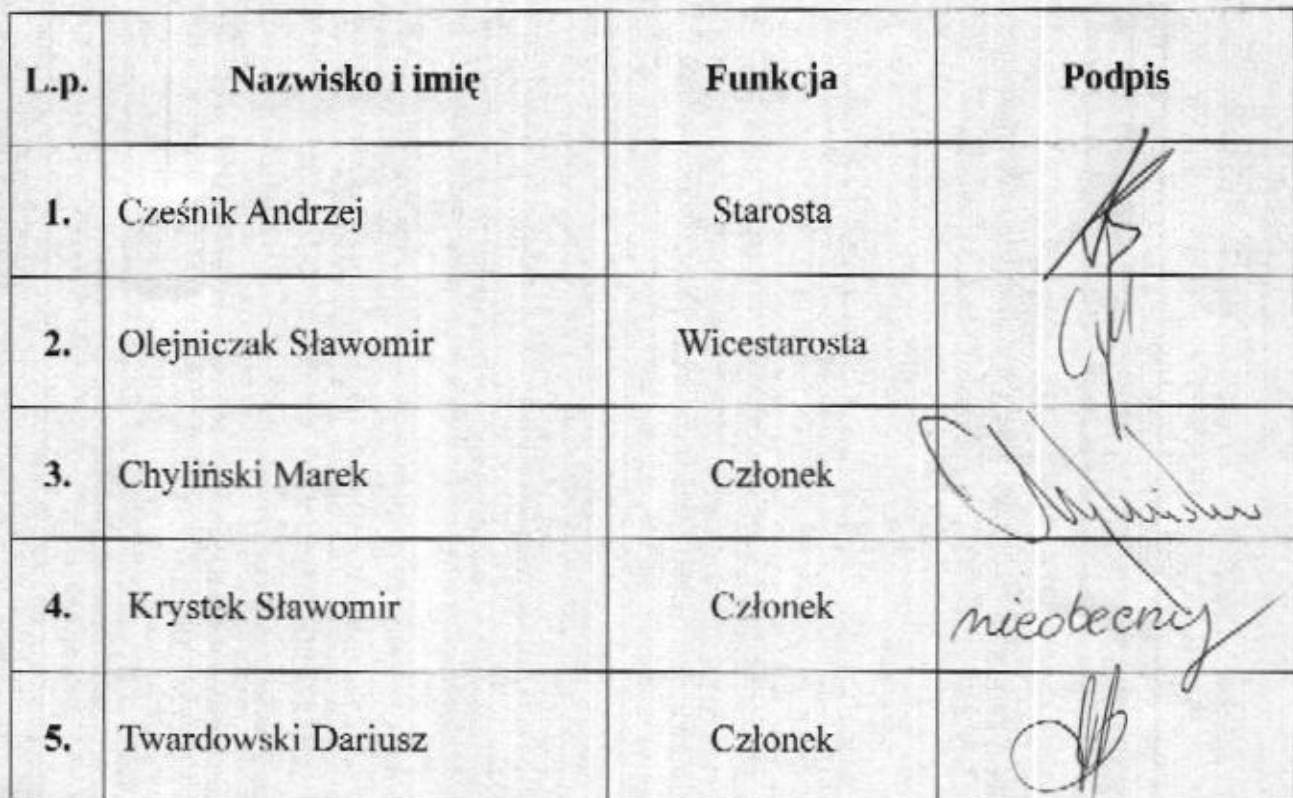 L.p. Nazwisko i imię Funkcja Podpis
1. Cześnik Andrzej Starosta
2. Olejniczak Sławomir Wicestarosta
3. Chyliński Marek Członek
4. Krystek Sławomir Członek nieobecny
5. Twardowski Dariusz Członek